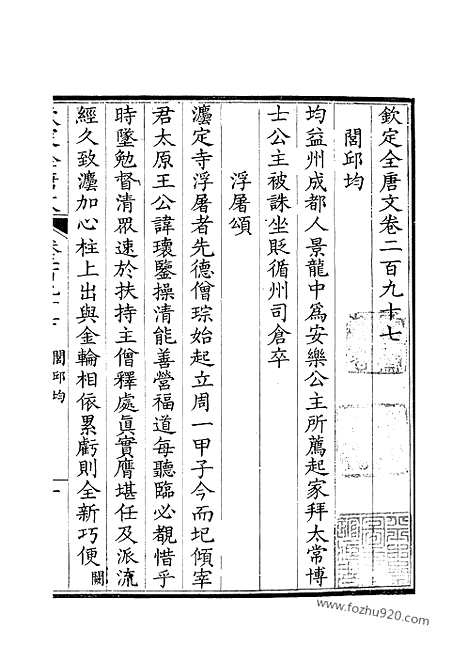 欽定全唐文卷二百九十七
閭邱均
均益州成都人景龍中爲安樂公主所薦起家拜太常博
士公主被誅坐貶循州司倉卒
浮屠頌
灋定寺浮屠者先德僧琮始起立周一甲子今而圯傾宰
君太原王公諱瓌鑒操清能善營福道每聽臨必覩惜乎
時墜勉督清眾速於扶持主僧釋處眞實膺堪任及派流
經久致灋加心柱上出與金輪相依累虧則全新巧便闕
閭邱均
一
www.fozhu920.com